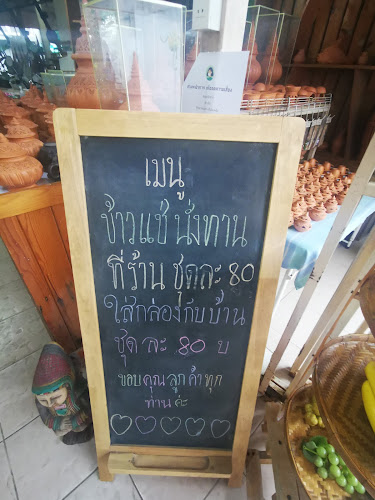 เมนู
ข้าวแช่ นั่งทาน
ที่ร้าน ชุดละ 80
ใส่กล่องกับบ้าน
ชุด ละ 80 บ
ขอบคุณลูกค้าทุก
ท่าน ค่ะ